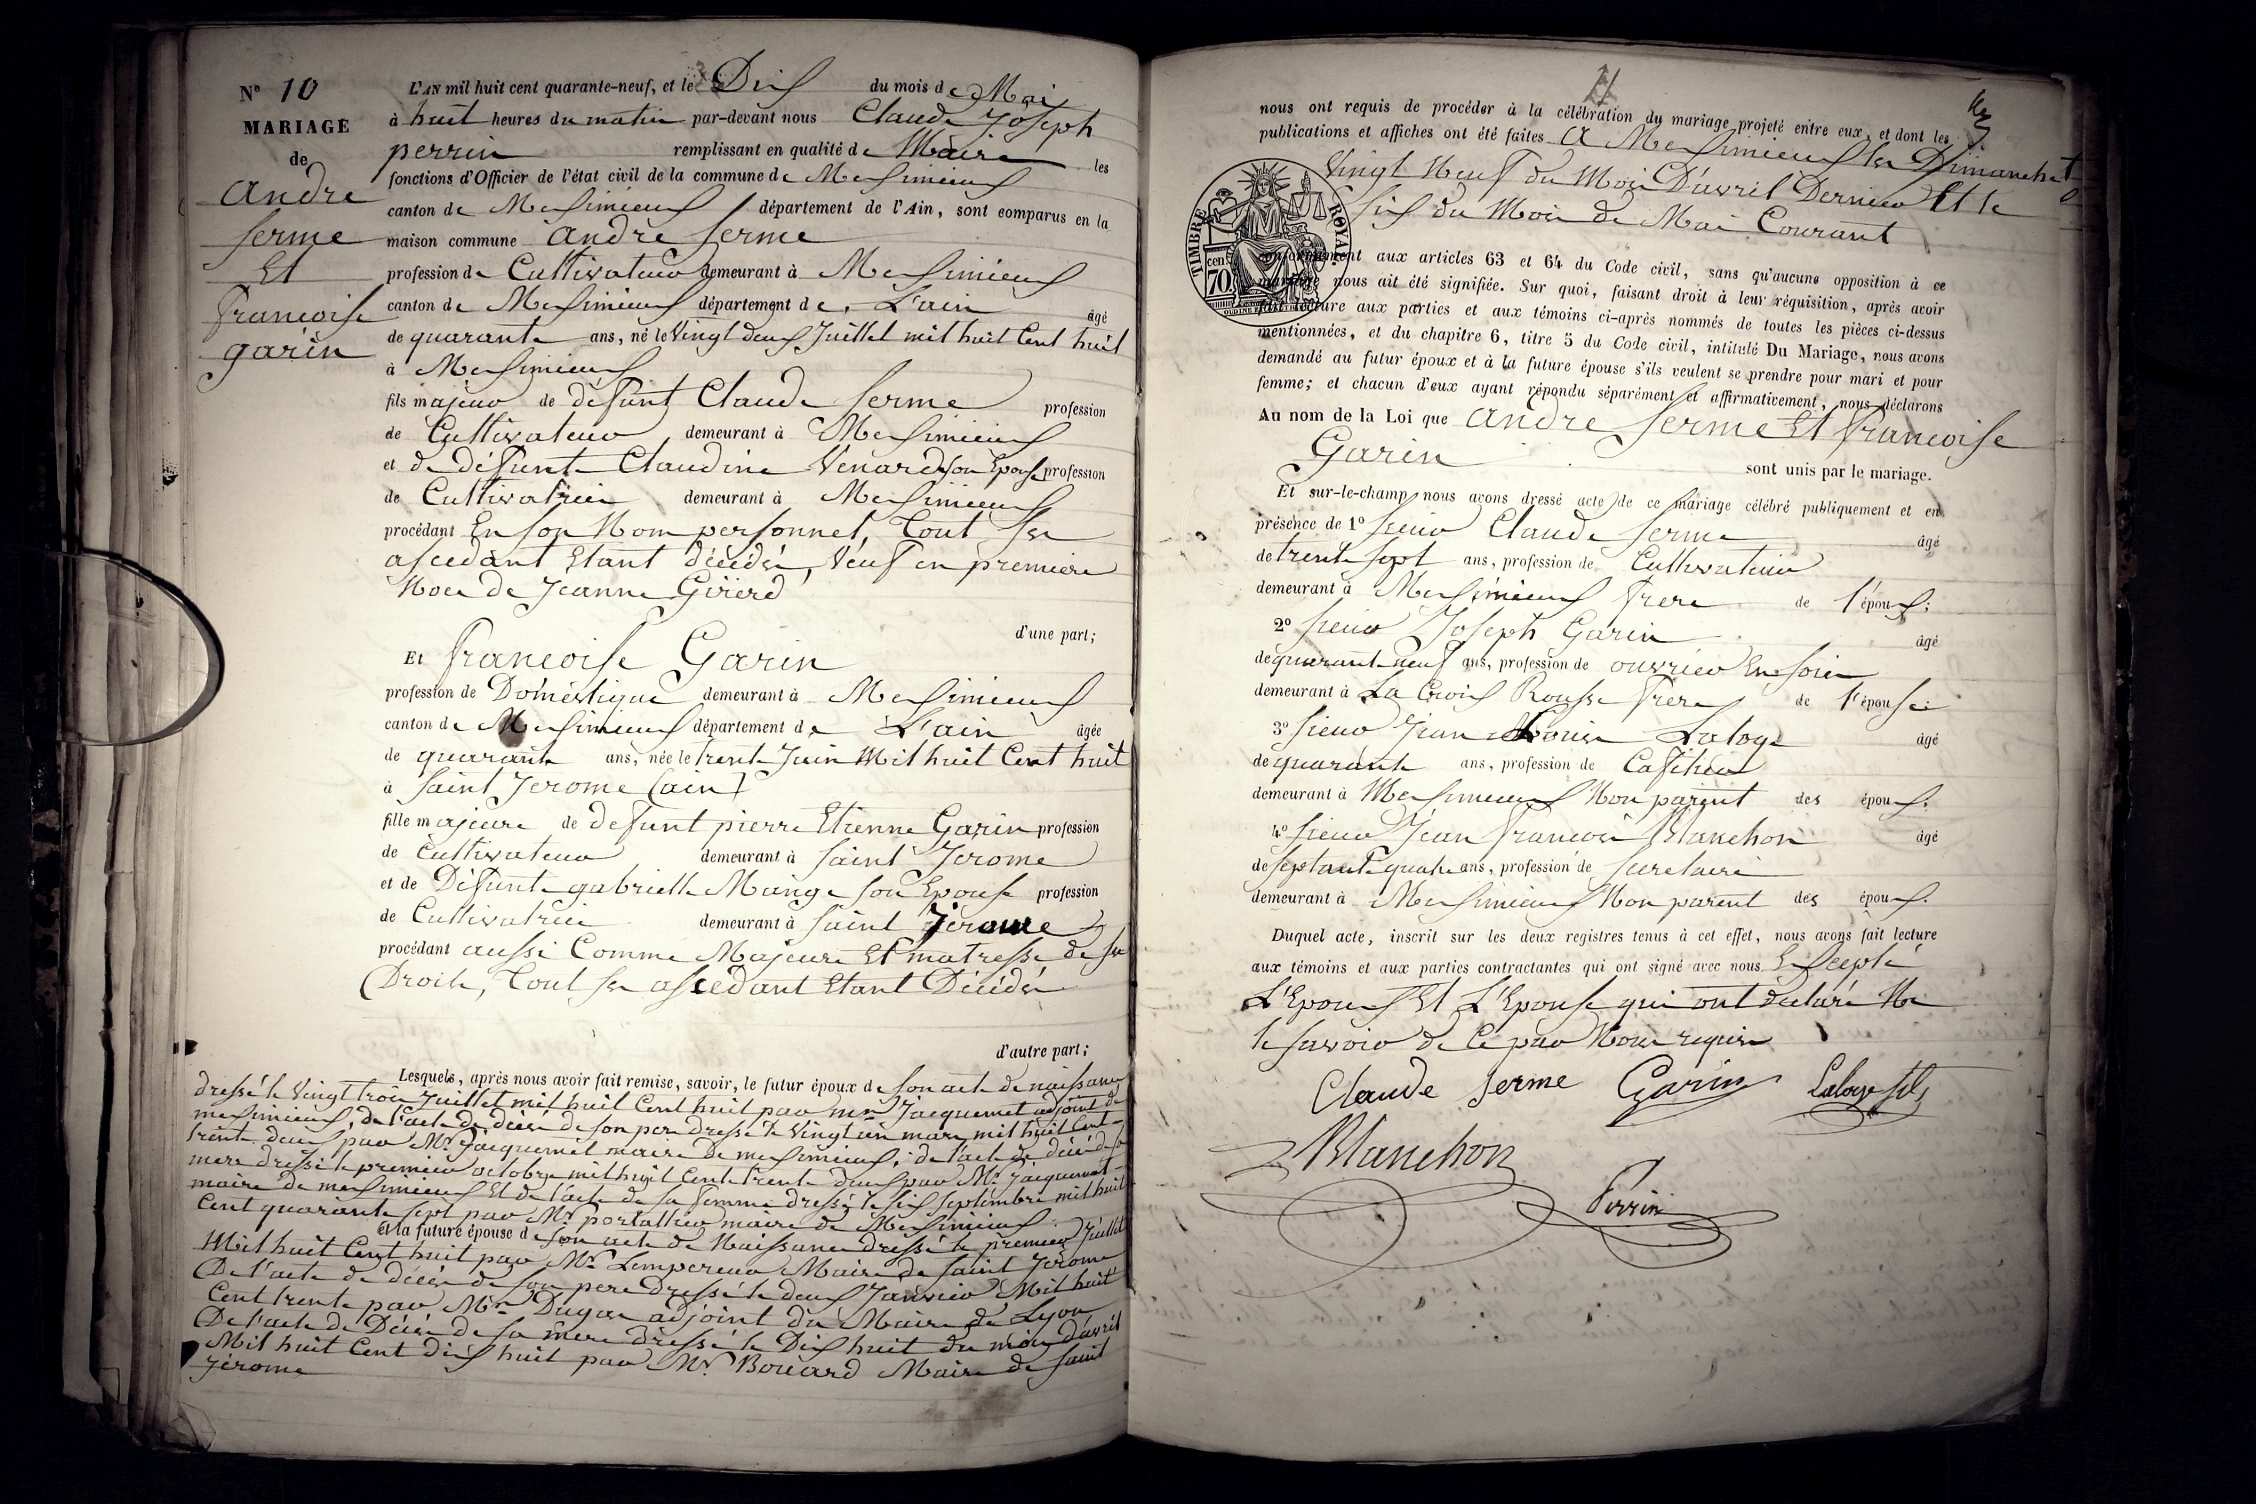 N° 10
MARIAGE
de
andre
serme
Et
francoise
garin
L'AN mil huit cent quarante-neuf, et le Dix du mois de Mai
à huit heures du matin par-devant nous Claude Joseph
perrin remplissant en qualité de Maire les
fonctions d'Officier de l'état civil de la commune de Meximieux
canton de Meximieux département de l'Ain, sont comparus en la
maison commune andré serme
profession de Cultivateur demeurant à Meximieux
canton de Meximieux département de L'ain âgé
de quarante ans, né le Vingt deux Juillet mil huit Cent huit
à Meximieux
fils majeur de défunt Claude serme profession
de Cultivateur demeurant à Meximieux
et de défunte Claudine Venard son Epouse profession
de Cultivatrice demeurant à Meximieux
procédant En son Nom personnel, Tout ses
ascedant Etant décédés, Veuf en première
Noce de Jeanne Girerd
d'une part;
Et francoise Garin
profession de Doméstique demeurant à Meximieux
canton de Meximieux département de L'ain âgée
de quarante ans, née le trente Juin Mil huit Cent huit
à Saint Jerome (ain)
fille majeure de defunt pierre Etienne Garin profession
de Cultivateur demeurant à Saint Jerome
et de Défunte gabrielle Mainge son Epouse profession
de Cultivatrice demeurant à Saint Jerome
procédant aussi Comme Majeure Et matresse de ses
Droits, Tout ses ascedant Etant Décédés
d'autre part;
Lesquels, après nous avoir fait remise, savoir, le futur époux de son acte de naissance
dressé le Vingt trois Juillet mil huit Cent huit par mr Jacquemet adjoint de
meximieux, de l'acte de décès de son pere dressé le Vingt un mars mil huit Cent
trente deux par Mr Jacquemet maire de meximieux, de l'acte de décès de sa
mere dressé le premier octobre mil huit Cent trente deux par Mr Jacquemet
maire de meximieux Et de l'acte de sa femme dressé le six septembre mil huit
Cent quarante sept par Mr portallier maire de Meximieux
et la future épouse de son acte de Naissance dressé le premier Juillet
Mil huit Cent huit par Mr Lempereur Maire de Saint Jerome
De l'acte de décès de son pere dressé le deux Janvier Mil huit
Cent trente par Mr Dugas adjoint du Maire de Lyon
De l'acte de Décès de sa mere dressé le Dix huit du mois d'avril
Mil huit Cent dix huit par Mr Bouard Maire de Saint
Jérome
11
nous ont requis de procéder à la célébration du mariage projeté entre eux, et dont les
publications et affiches ont été faites a Meximieux les Dimanches
Vingt Neuf du Mois D'avril Dernier Et le
six du Mois de Mai Courant
TIMBRE ROYAL
70 cen
conformément aux articles 63 et 64 du Code civil, sans qu'aucune opposition à ce
mariage nous ait été signifiée. Sur quoi, faisant droit à leur réquisition, après avoir
fait lecture aux parties et aux témoins ci-après nommés de toutes les pièces ci-dessus
mentionnées, et du chapitre 6, titre 5 du Code civil, intitulé Du Mariage, nous avons
demandé au futur époux et à la future épouse s'ils veulent se prendre pour mari et pour
femme; et chacun d'eux ayant répondu séparément et affirmativement, nous déclarons
Au nom de la Loi que andre serme Et francoise
Garin sont unis par le mariage.
Et sur-le-champ nous avons dressé acte de ce mariage célébré publiquement et en
présence de 1° sieur Claude serme âgé
de trente sept ans, profession de Cultivateur
demeurant à Meximieux frere de l'époux;
2° sieur Joseph Garin âgé
de quarante neuf ans, profession de ouvrier En soie
demeurant à La Croix Rousse frere de l'épouse;
3° sieur Jean Louis Laloge âgé
de quarante ans, profession de Cafetier
demeurant à Meximieux Non parent des époux.
4° sieur Jean francois Blanchon âgé
de septante quatre ans, profession de secretaire
demeurant à Meximieux Non parent des époux.
Duquel acte, inscrit sur les deux registres tenus à cet effet, nous avons fait lecture
aux témoins et aux parties contractantes qui ont signé avec nous Excepté
L'Epoux Et L'Epouse qui ont declaré Ne
le savoir de Ce par Nous requis
Claude serme Garin Laloge fils
Blanchon
Perrin